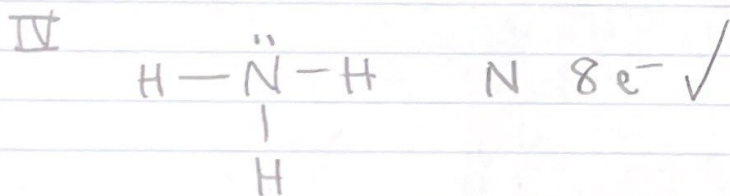 IV
H — N̈ — H   N 8e⁻ ✓
|
H